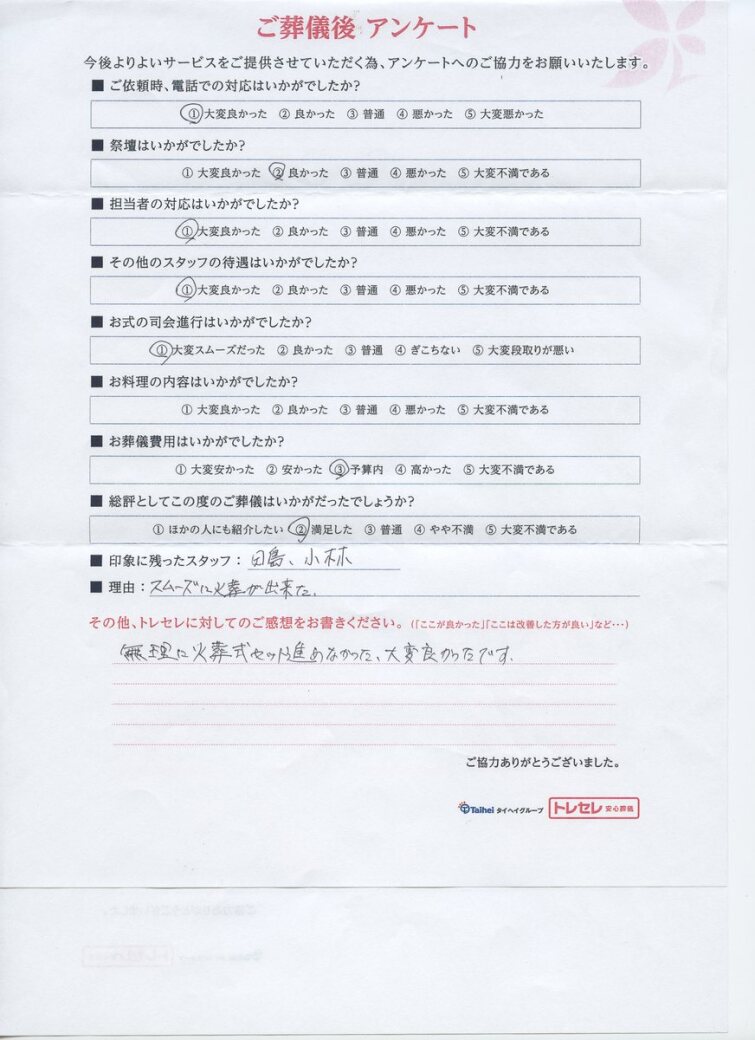 ご葬儀後 アンケート
今後よりよいサービスをご提供させていただく為、アンケートへのご協力をお願いいたします。
■ ご依頼時、電話での対応はいかがでしたか?
① 大変良かった ② 良かった ③ 普通 ④ 悪かった ⑤ 大変悪かった
■ 祭壇はいかがでしたか?
① 大変良かった ② 良かった ③ 普通 ④ 悪かった ⑤ 大変不満である
■ 担当者の対応はいかがでしたか?
① 大変良かった ② 良かった ③ 普通 ④ 悪かった ⑤ 大変不満である
■ その他のスタッフの待遇はいかがでしたか?
① 大変良かった ② 良かった ③ 普通 ④ 悪かった ⑤ 大変不満である
■ お式の司会進行はいかがでしたか?
① 大変スムーズだった ② 良かった ③ 普通 ④ ぎこちない ⑤ 大変段取りが悪い
■ お料理の内容はいかがでしたか?
① 大変良かった ② 良かった ③ 普通 ④ 悪かった ⑤ 大変不満である
■ お葬儀費用はいかがでしたか?
① 大変安かった ② 安かった ③ 予算内 ④ 高かった ⑤ 大変不満である
■ 総評としてこの度のご葬儀はいかがだったでしょうか?
① ほかの人にも紹介したい ② 満足した ③ 普通 ④ やや不満 ⑤ 大変不満である
■ 印象に残ったスタッフ： 田島、小林
■ 理由：スムーズに火葬が出来た.
その他、トレセレに対してのご感想をお書きください。(「ここが良かった」「ここは改善した方が良い」など・・・)
無理に火葬式セット進めなかった、大変良かったです.
ご協力ありがとうございました。
Taihei タイヘイグループ トレセレ 安心葬儀